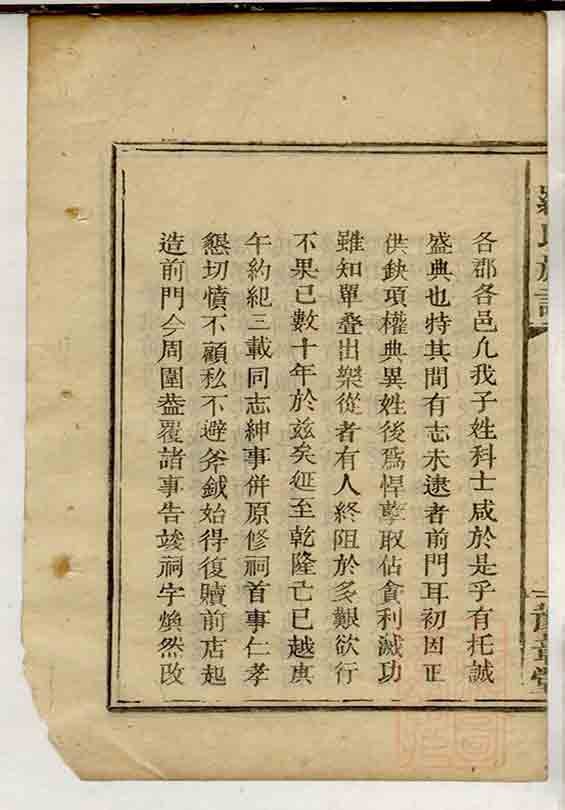 羅氏族譜
豫章堂
各郡各邑凢我子姓科士咸於是乎有托誠
盛典也特其間有志未逮者前門耳初因正
供鈌項權典異姓後爲悍孽取佔貪利滅功
雖知單叠出樂從者有人終阻於多艱欲行
不果已數十年於兹矣延至乾隆亡巳越庚
午約紀三載同志紳事併原修祠首事仁孝
懇切憤不顧私不避斧鉞始得復贖前店起
造前門今周圍葢覆諸事告竣祠字煥然改